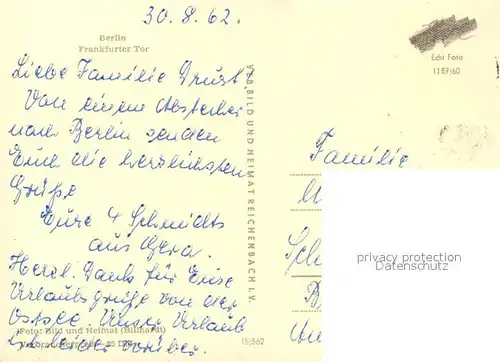 30.8.62.
Berlin
Frankfurter Tor
Liebe Familie Trust
Von einem Abstecher
nach Berlin senden
Euch die herzlichsten
Grüße
Eure 4 Schmidts
aus Gera.
Herzl. Dank für Eure
Urlaubsgrüße von der
Ostsee. Unser Urlaub
ist leider vorüber.
(Foto: Bild und Heimat
Verbraucherpreis
15/562
VEB BILD UND HEIMAT REICHENBACH I. V.
Echt Foto
1187/60
Familie
privacy protection
Datenschutz